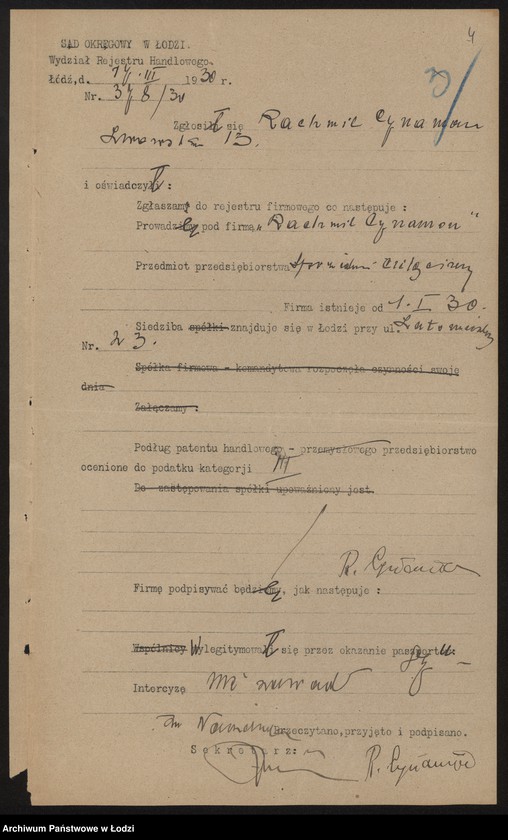 4
3
SĄD OKRĘGOWY W ŁODZI.
Wydział Rejestru Handlowego.
Łódź, d. 17.III 1930 r.
Nr. 378/30
Zgłosił się Rachmil Cynamon
Lwowska 13.
i oświadczył:
Zgłaszam do rejestru firmowego co następuje :
Prowadzę pod firmą „Rachmil Cynamon"
Przedmiot przedsiębiorstwa
Firma istnieje od 1.I 30.
Siedziba spółki znajduje się w Łodzi przy ul.
Nr. 23.
Spółka firmowa - komandytowa rozpoczęła czynności swoje
dnia
Załączamy :
Podług patentu handlowego - przemysłowego przedsiębiorstwo
ocenione do podatku kategorji III
Do zastępowania spółki upoważniony jest.
R. Cynamon
Firmę podpisywać będę, jak następuje :
Wspólnicy Wylegitymował się przez okazanie
Intercyzę nie zawarł
Przeczytano, przyjęto i podpisano.
Sekretarz:
R. Cynamon
Archiwum Państwowe w Łodzi